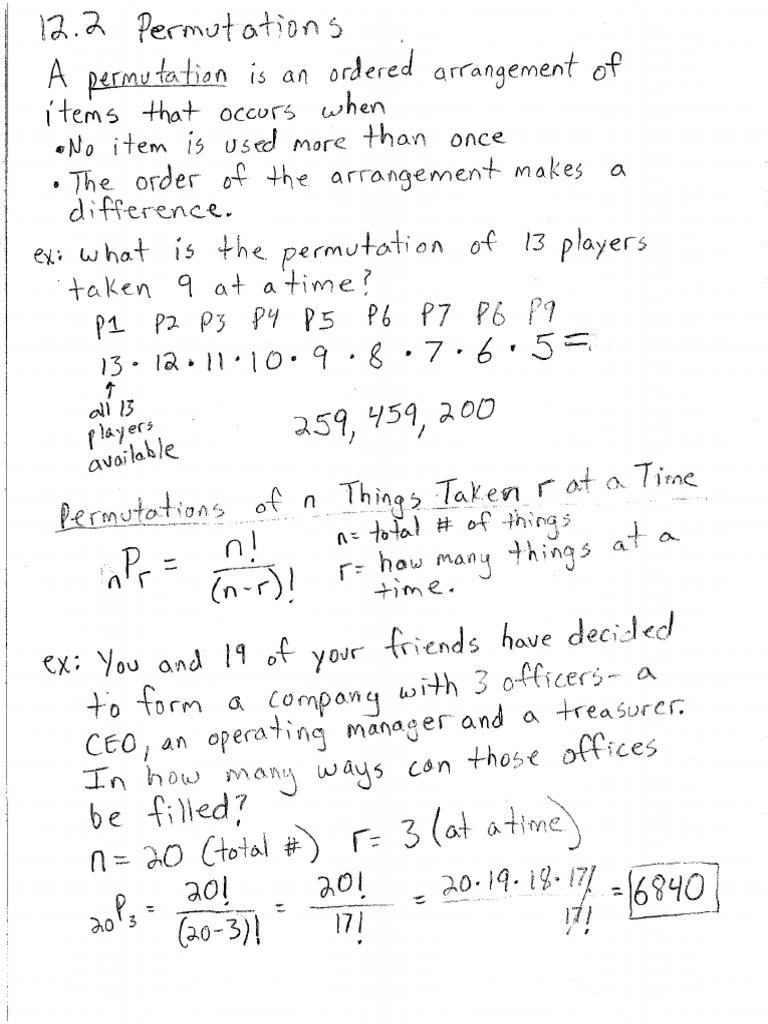 12.2 Permutations
A permutation is an ordered arrangement of
items that occurs when
• No item is used more than once
• The order of the arrangement makes a
difference.
ex: what is the permutation of 13 players
taken 9 at a time?
P1 P2 P3 P4 P5 P6 P7 P8 P9
13 · 12 · 11 · 10 · 9 · 8 · 7 · 6 · 5 =
↑
all 13
players
available
259,459,200
Permutations of n Things Taken r at a Time
nPr = n! / (n-r)!
n = total # of things
r = how many things at a
time.
ex: You and 19 of your friends have decided
to form a company with 3 officers - a
CEO, an operating manager and a treasurer.
In how many ways can those offices
be filled?
n = 20 (total #) r = 3 (at a time)
20P3 = 20! / (20-3)! = 20! / 17! = 20·19·18·17! / 17! = 6840